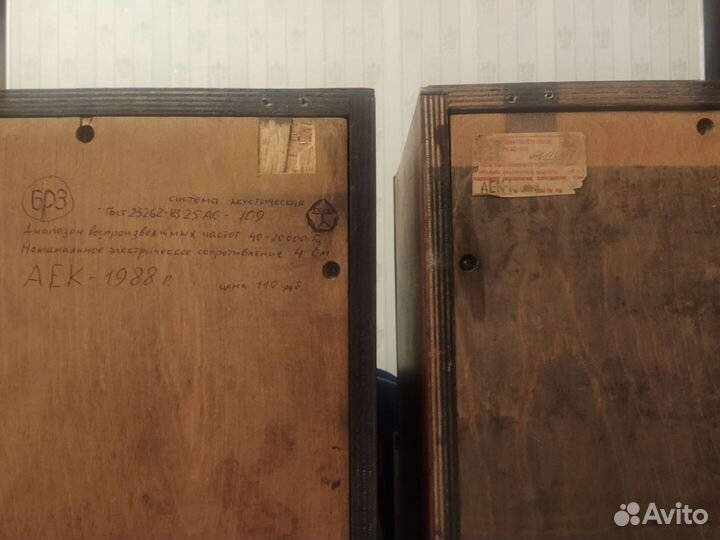 БРЗ
система акустическая
Гост 23262-83 25АС - 109
Диапазон воспроизводимых частот 40-20000 Гц
Номинальное электрическое сопротивление 4 Ом
АЕК - 1988 г.
цена 110 руб.
Avito